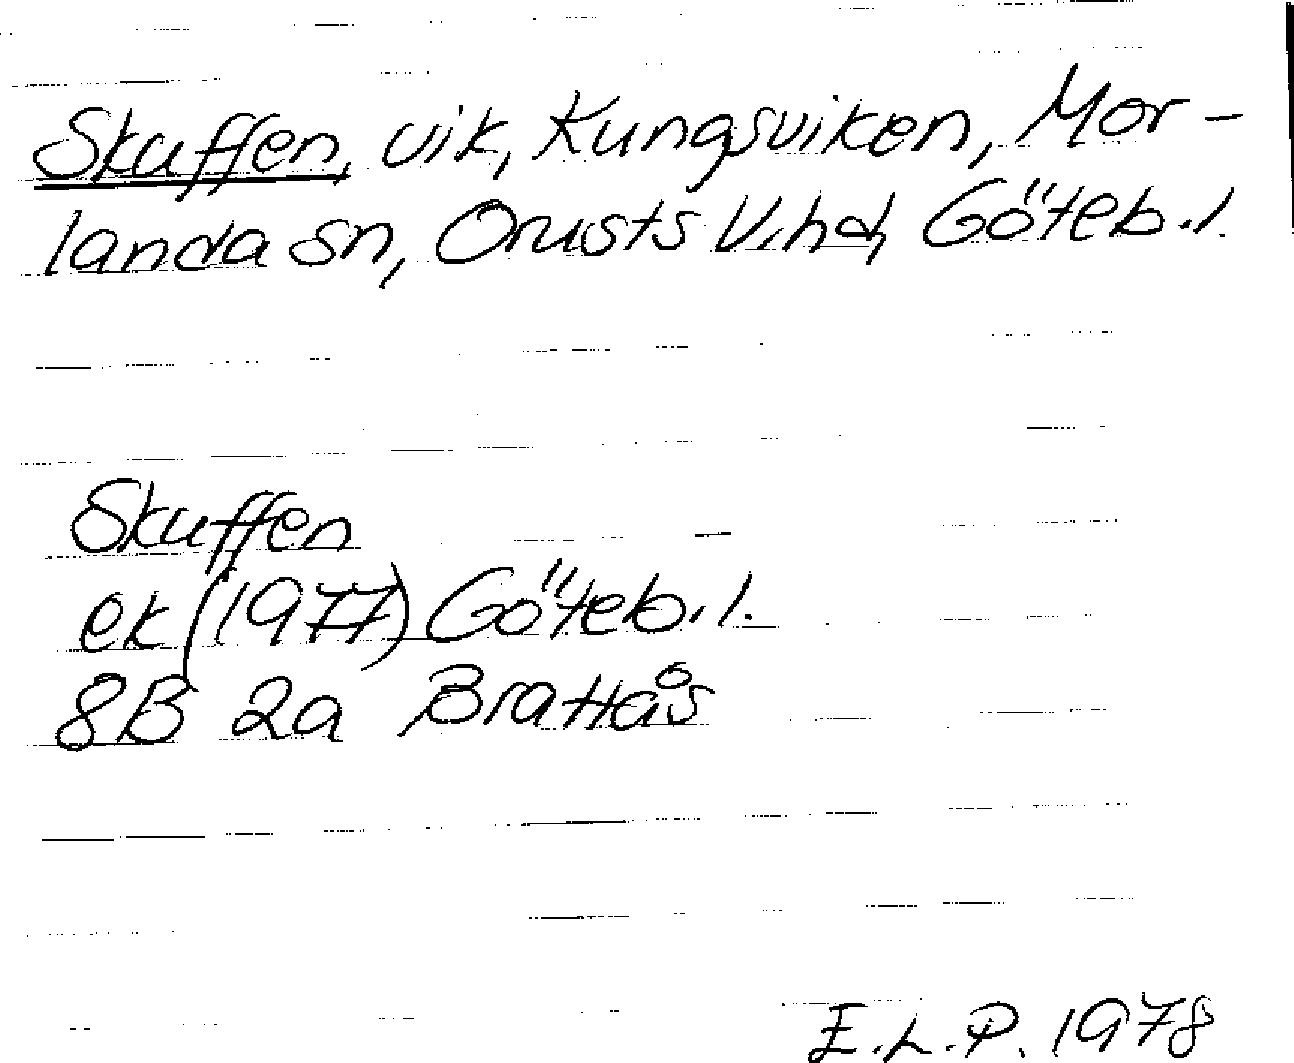 Skuffen, vik, Kungsviken, Mor-
landa sn, Orusts V.hd, Göteb.l.
Skuffen
ek (1977) Göteb.l.
8B 2a Brattås
E.L.P. 1978